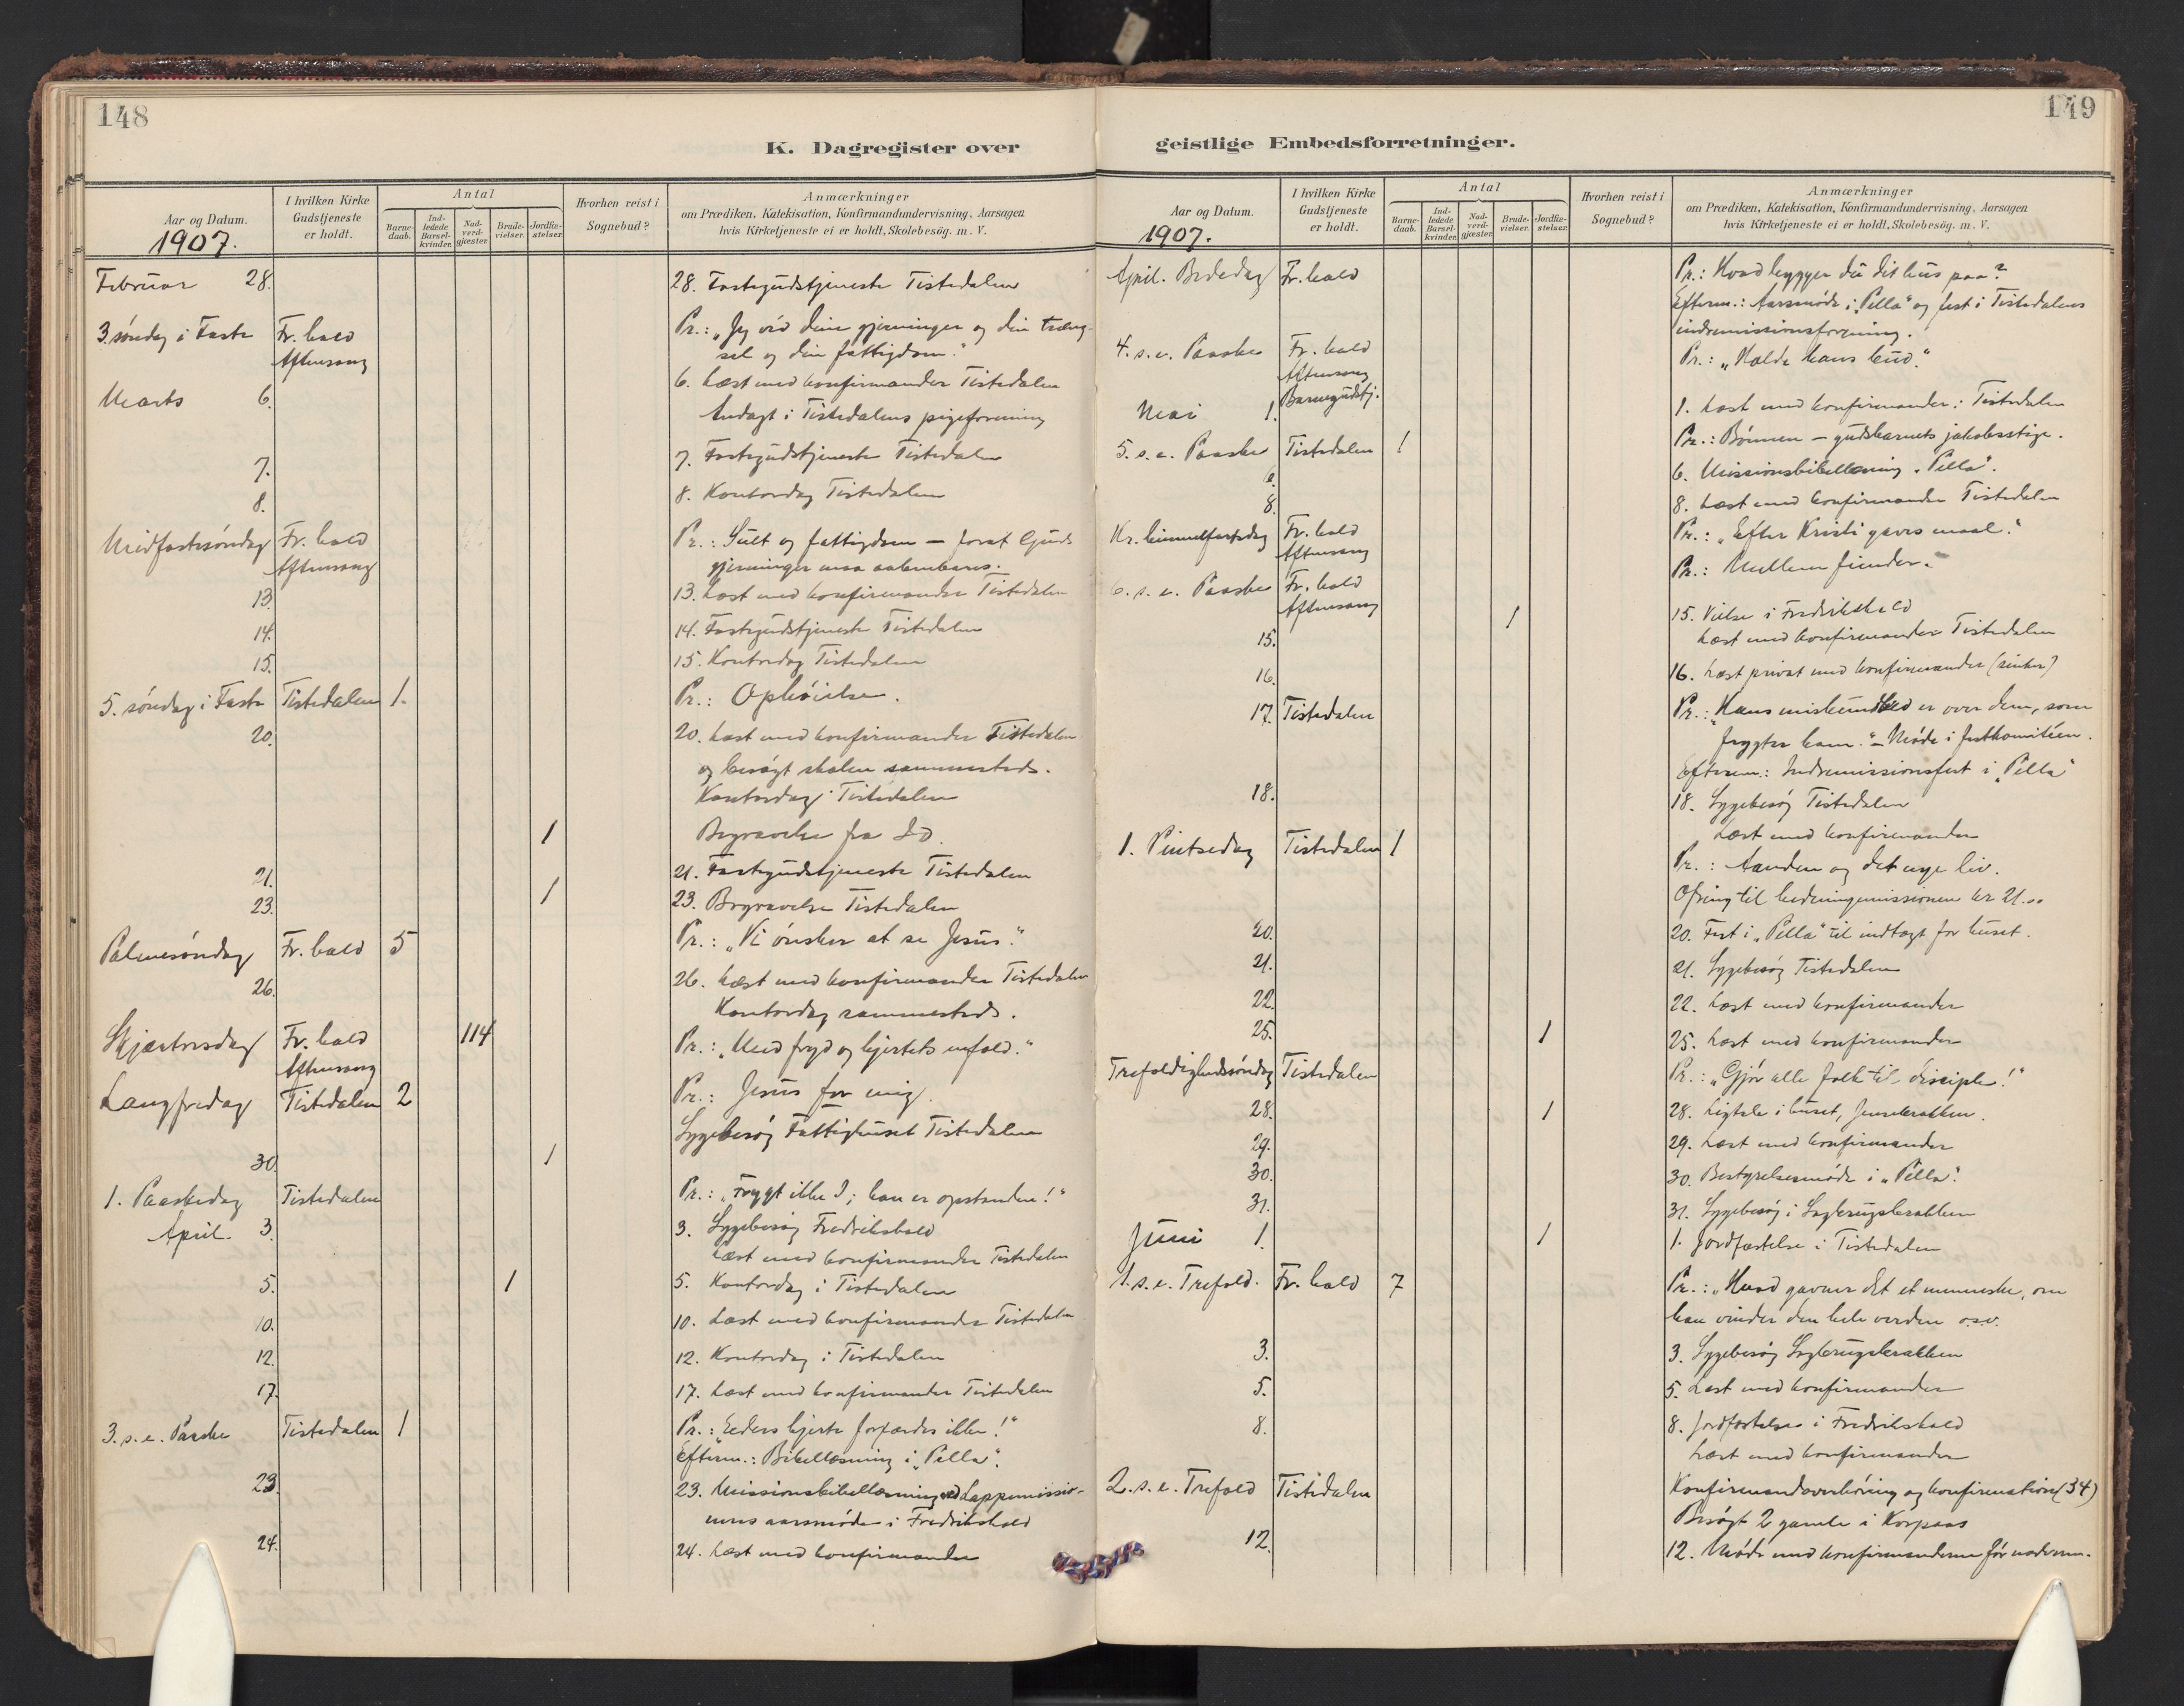 148
K. Dagregister over
Aar og Datum.
1907.
I hvilken Kirke Gudstjeneste er holdt.
Antal
Barne-daab.
Ind-ledede Barsel-kvinder.
Nad-verd-gjæster.
Brude-vielser.
Jordfæ-stelser.
Hvorhen reist i Sognebud?
Anmærkninger
om Prædiken, Katekisation, Konfirmandundervisning, Aarsagen
hvis Kirketjeneste ei er holdt, Skolebesög. m. V.
Februar 28. 28. Fastegudstjeneste Tistedalen
3. søndag i Faste Fr.hald Pr.: „Jeg véd dine gjerninger og din træng-
Aftensang sel og din fattigdom."
Marts 6. 6. Læst med konfirmander Tistedalen
Andagt i Tistedalens pigeforening
7. 7. Fastegudstjeneste Tistedalen
8. 8. Kontordag Tistedalen
Midfastesøndag Fr.hald Pr.: Sult og fattigdom – forat Guds
Aftensang gjerninger maa aabenbares.
13. 13. Læst med konfirmander Tistedalen
14. 14. Fastegudstjeneste Tistedalen
15. 15. Kontordag Tistedalen
5. søndag i Faste Tistedalen 1. Pr.: Ophøielse.
20. 20. Læst med konfirmander Tistedalen
og besøgt skolen sammesteds.
Kontordag Tistedalen
1 Begravelse fra
21. 21. Fastegudstjeneste Tistedalen
23. 1 23. Begravelse Tistedalen
Palmesøndag Fr.hald 5 Pr.: „Vi ønsker at se Jesus."
26. 26. Læst med konfirmander Tistedalen
Kontordag sammesteds.
Skjærtorsdag Fr.hald 114 Pr.: „Med fryd og hjertets enfold."
Aftensang
Langfredag Tistedalen 2 Pr.: Jesus for mig.
Sygebesøg Fattighuset Tistedalen
30. 1
1. Paaskedag Tistedalen Pr.: „Frygt ikke I; han er opstanden!"
April. 3. 3. Sygebesøg Fredrikshald
Læst med konfirmander Tistedalen
5. 1 5. Kontordag i Tistedalen
10. 10. Læst med konfirmander Tistedalen
12. 12. Kontordag i Tistedalen
17. 17. Læst med konfirmander Tistedalen
3. s. e. Paaske Tistedalen 1 Pr.: „Eders hjerte forfærdes ikke!"
Efterm.: Bibellæsning i „Pella".
23. 23. Missionsbibellæsning ved Lappemissio-
nens aarsmøde i Fredrikshald
24. 24. Læst med konfirmander
149
geistlige Embedsforretninger.
Aar og Datum.
1907.
I hvilken Kirke Gudstjeneste er holdt.
Antal
Barne-daab.
Ind-ledede Barsel-kvinder.
Nad-verd-gjæster.
Brude-vielser.
Jordfæ-stelser.
Hvorhen reist i Sognebud?
Anmærkninger
om Prædiken, Katekisation, Konfirmandundervisning, Aarsagen
hvis Kirketjeneste ei er holdt, Skolebesög. m. V.
April. Bededag Fr.hald Pr.: Hvad bygger du dit hus paa?
Efterm.: Aarsmøde i „Pella" og fest i Tistedalens
indremissionsforening.
4. s. e. Paaske Fr.hald Pr.: „Holde hans bud."
Aftensang
Barnegudstj.
Mai 1. 1. Læst med konfirmander: Tistedalen
5. s. e. Paaske Tistedalen 1 Pr.: Bønnen – gudsbarnets jakobsstige.
6. 6. Missionsbibellæsning „Pella".
8. 8. Læst med konfirmander Tistedalen
Kr. himmelfartsdag Fr.hald Pr.: „Efter Kristi gaves maal."
Aftensang
6. s. e. Paaske Fr.hald Pr.: Mellem fiender.
Aftensang
15. 1 15. Vielse i Fredrikshald
Læst med konfirmander Tistedalen
16. 16. Læst privat med konfirmander
17. Tistedalen Pr.: „Hans miskundhed er over dem, som
frygter ham." – Møde i festkomitéen.
Efterm.: Indremissionsfest i „Pella"
18. 18. Sygebesøg Tistedalen
Læst med konfirmander
1. Pintsedag Tistedalen 1 Pr.: Aanden og det nye liv.
Ofring til hedningemissionen kr 21.00
20. 20. Fest i „Pella" til indtægt for huset.
21. 21. Sygebesøg Tistedalen
22. 22. Læst med konfirmander
25. 1 25. Læst med konfirmander
Trefoldighedssøndag Tistedalen Pr.: „Gjør alle folk til disciple!"
28. 1 28. Ligtale i huset,
29. 29. Læst med konfirmander
30. 30. Bestyrelsesmøde i „Pella".
31. 31. Sygebesøg i Sagbrugsbrakken
Juni 1. 1 1. Jordfæstelse i Tistedalen
1. s. e. Trefold. Fr.hald 7 Pr.: „Hvad gavner det et menneske, om
han vinder den hele verden o.s.v.
3. 3. Sygebesøg Sagbrugsbrakken
5. 5. Læst med konfirmander
8. 8. Jordfæstelse i Fredrikshald
Læst med konfirmander
2. s. e. Trefold Tistedalen Konfirmandoverhøring og konfirmation (34)
Besøgt 2 gamle i Korpaas
12. 12. Møde med konfirmanderne før nadveren.